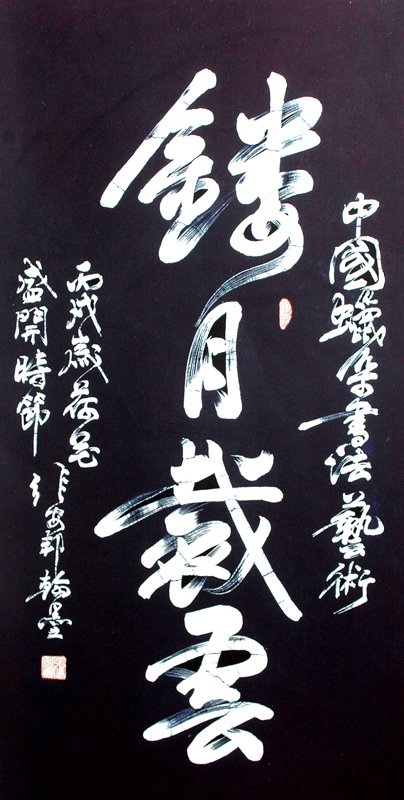 中國蠟染書法藝術
鏤月裁雲
丙戌歲荷花
盛開時節
張安邦翰墨